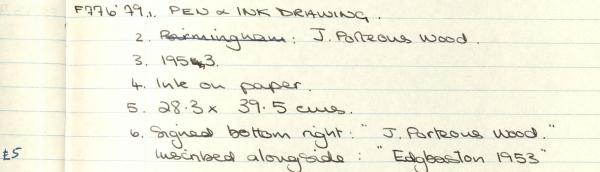 F776'79. 1. PEN & INK DRAWING.
2. Birmingham: J. Porteous Wood.
3. 1953.
4. Ink on paper.
5. 28.3 x 39.5 cms.
6. Signed bottom right: "J. Porteous Wood."
£5 Inscribed alongside: "Edgbaston 1953"